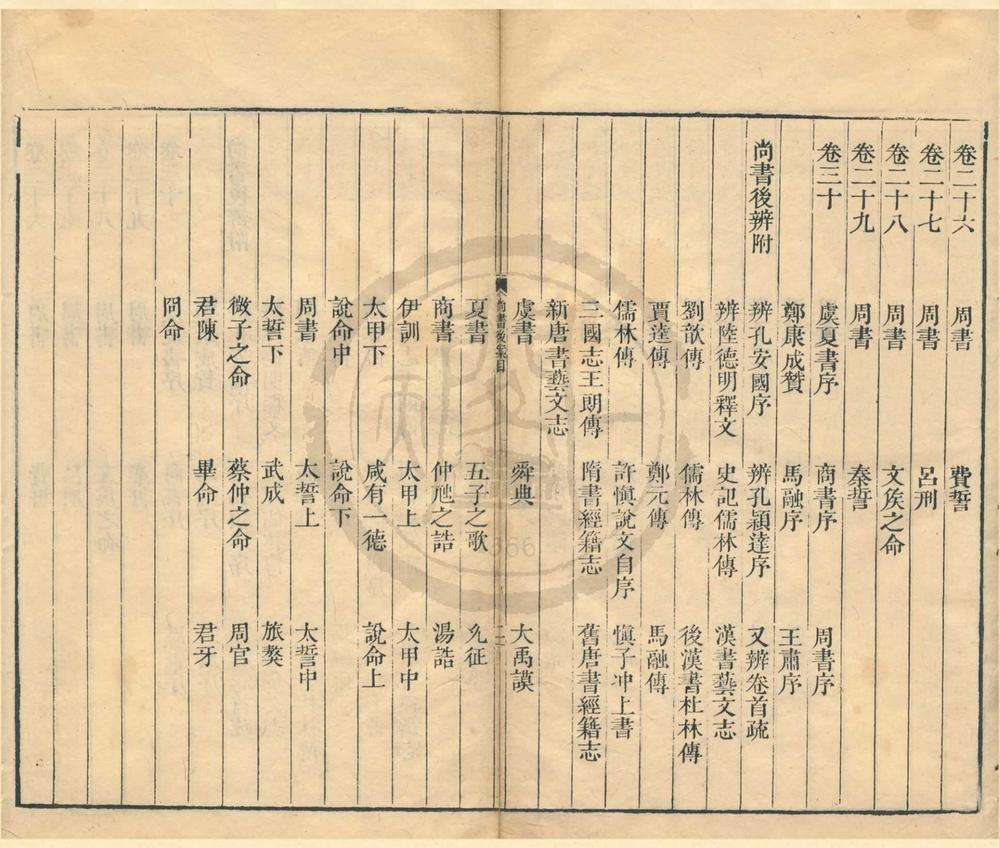 卷二十六 周書 費誓
卷二十七 周書 呂刑
卷二十八 周書 文矦之命
卷二十九 周書 秦誓
卷三十 虞夏書序 商書序 周書序
鄭康成贊 馬融序 王肅序
尚書後辨附 辨孔安國序 辨孔穎達序 又辨卷首疏
辨陸德明釋文 史記儒林傳 漢書藝文志
劉歆傳 儒林傳 後漢書杜林傳
賈逵傳 鄭元傳 馬融傳
儒林傳 許愼說文自序 愼子冲上書
三國志王朗傳 隋書經籍志 舊唐書經籍志
新唐書藝文志
尚書後案目 二
虞書 舜典 大禹謨
夏書 五子之歌 允征
商書 仲虺之誥 湯誥
伊訓 太甲上 太甲中
太甲下 咸有一德 說命上
說命中 說命下
周書 太誓上 太誓中
太誓下 武成 旅獒
微子之命 蔡仲之命 周官
君陳 畢命 君牙
冏命